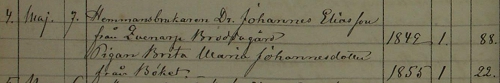 4. Maj 7. Hemmansbrukaren Dr. Johannes Eliasson
från Qvenarp Brodsgård 1849 1. 88.
Pigan Brita Maria Johannesdotter
från Böket. 1855 1 22.